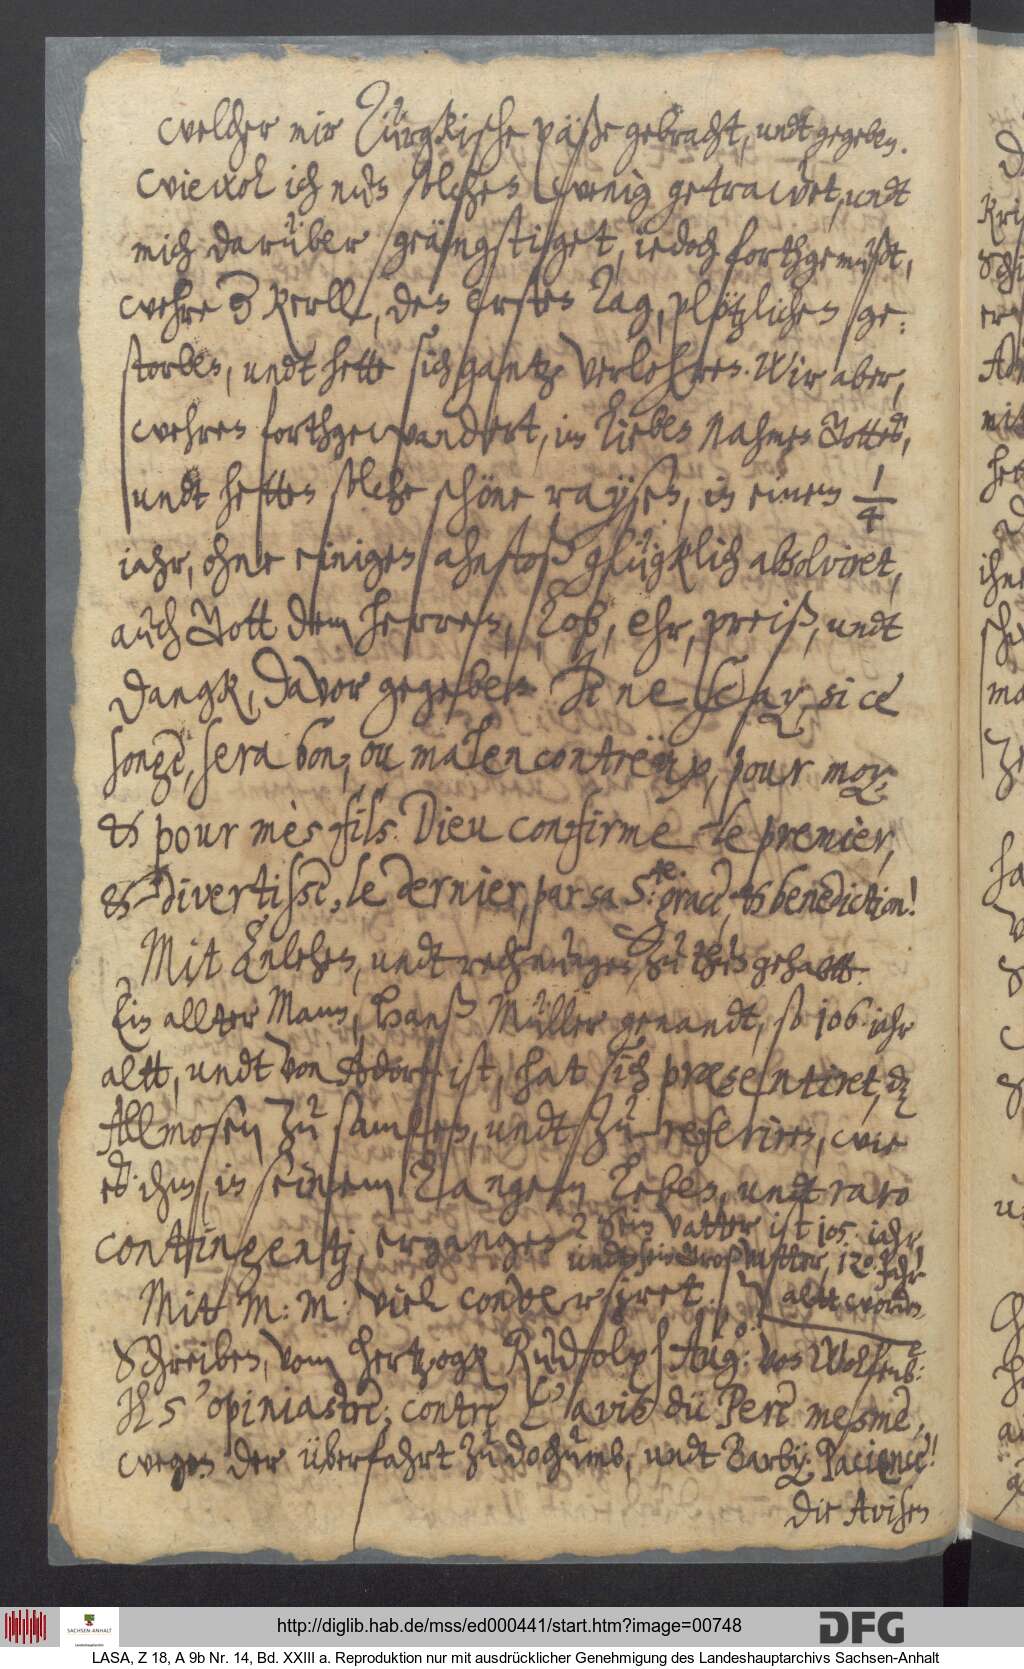 welcher mir Türgkische päße gebracht, undt gegeben.
wiewol ich nun solchen wenig getrawet, undt
mich darüber geängstiget, iedoch forthgemußt,
wehre der Kerll, den ersten Tag, plötzlichen ge:
storben, undt hette sich gantz verlohren. Wir aber,
wehren forthgewandert, im lieben Nahmen Gottes,
undt hetten solche schöne raysen, in einem 1/4
iahr, ohne einigen ahnstoß glügklich absolviret,
auch Gott dem herren, Lob, ehr, preiß, undt
dangk, davor gegeben. Je ne scay, si ce
songe, sera bon, ou malencontreux, pour moy,
& pour mes fils. Dieu confirme le premier,
& divertisse, le dernier, par sa S.te grace, & benediction!
Mit Enlehen, undt rechnungen, zu thun gehabtt.
Ein allter Mann, Hanß Müller genandt, so 106 iahr
altt, undt von Adorf ist, hat sich præsentiret, dz
Allmosen zu samlen, undt zu referiren, wie
es ihm, in seinem Langem Leben, undt raro
contingentj, ergangen. Sein vatter ist 105. iahr,
undt sein Großvatter, 120. Jahr
altt worden
Mitt M: M: viel conversiret.
Schreiben, vom hertzogk Rudolph Aug: von Wolfenb:
Il s'opiniastre, contre l'avis du Pere mesme,
wegen der überfahrt zu dochumb, undt Barby. Pacience!
Die Avisen
http://diglib.hab.de/mss/ed000441/start.htm?image=00748
DFG
SACHSEN-ANHALT
Landeshauptarchiv
LASA, Z 18, A 9b Nr. 14, Bd. XXIII a. Reproduktion nur mit ausdrücklicher Genehmigung des Landeshauptarchivs Sachsen-Anhalt